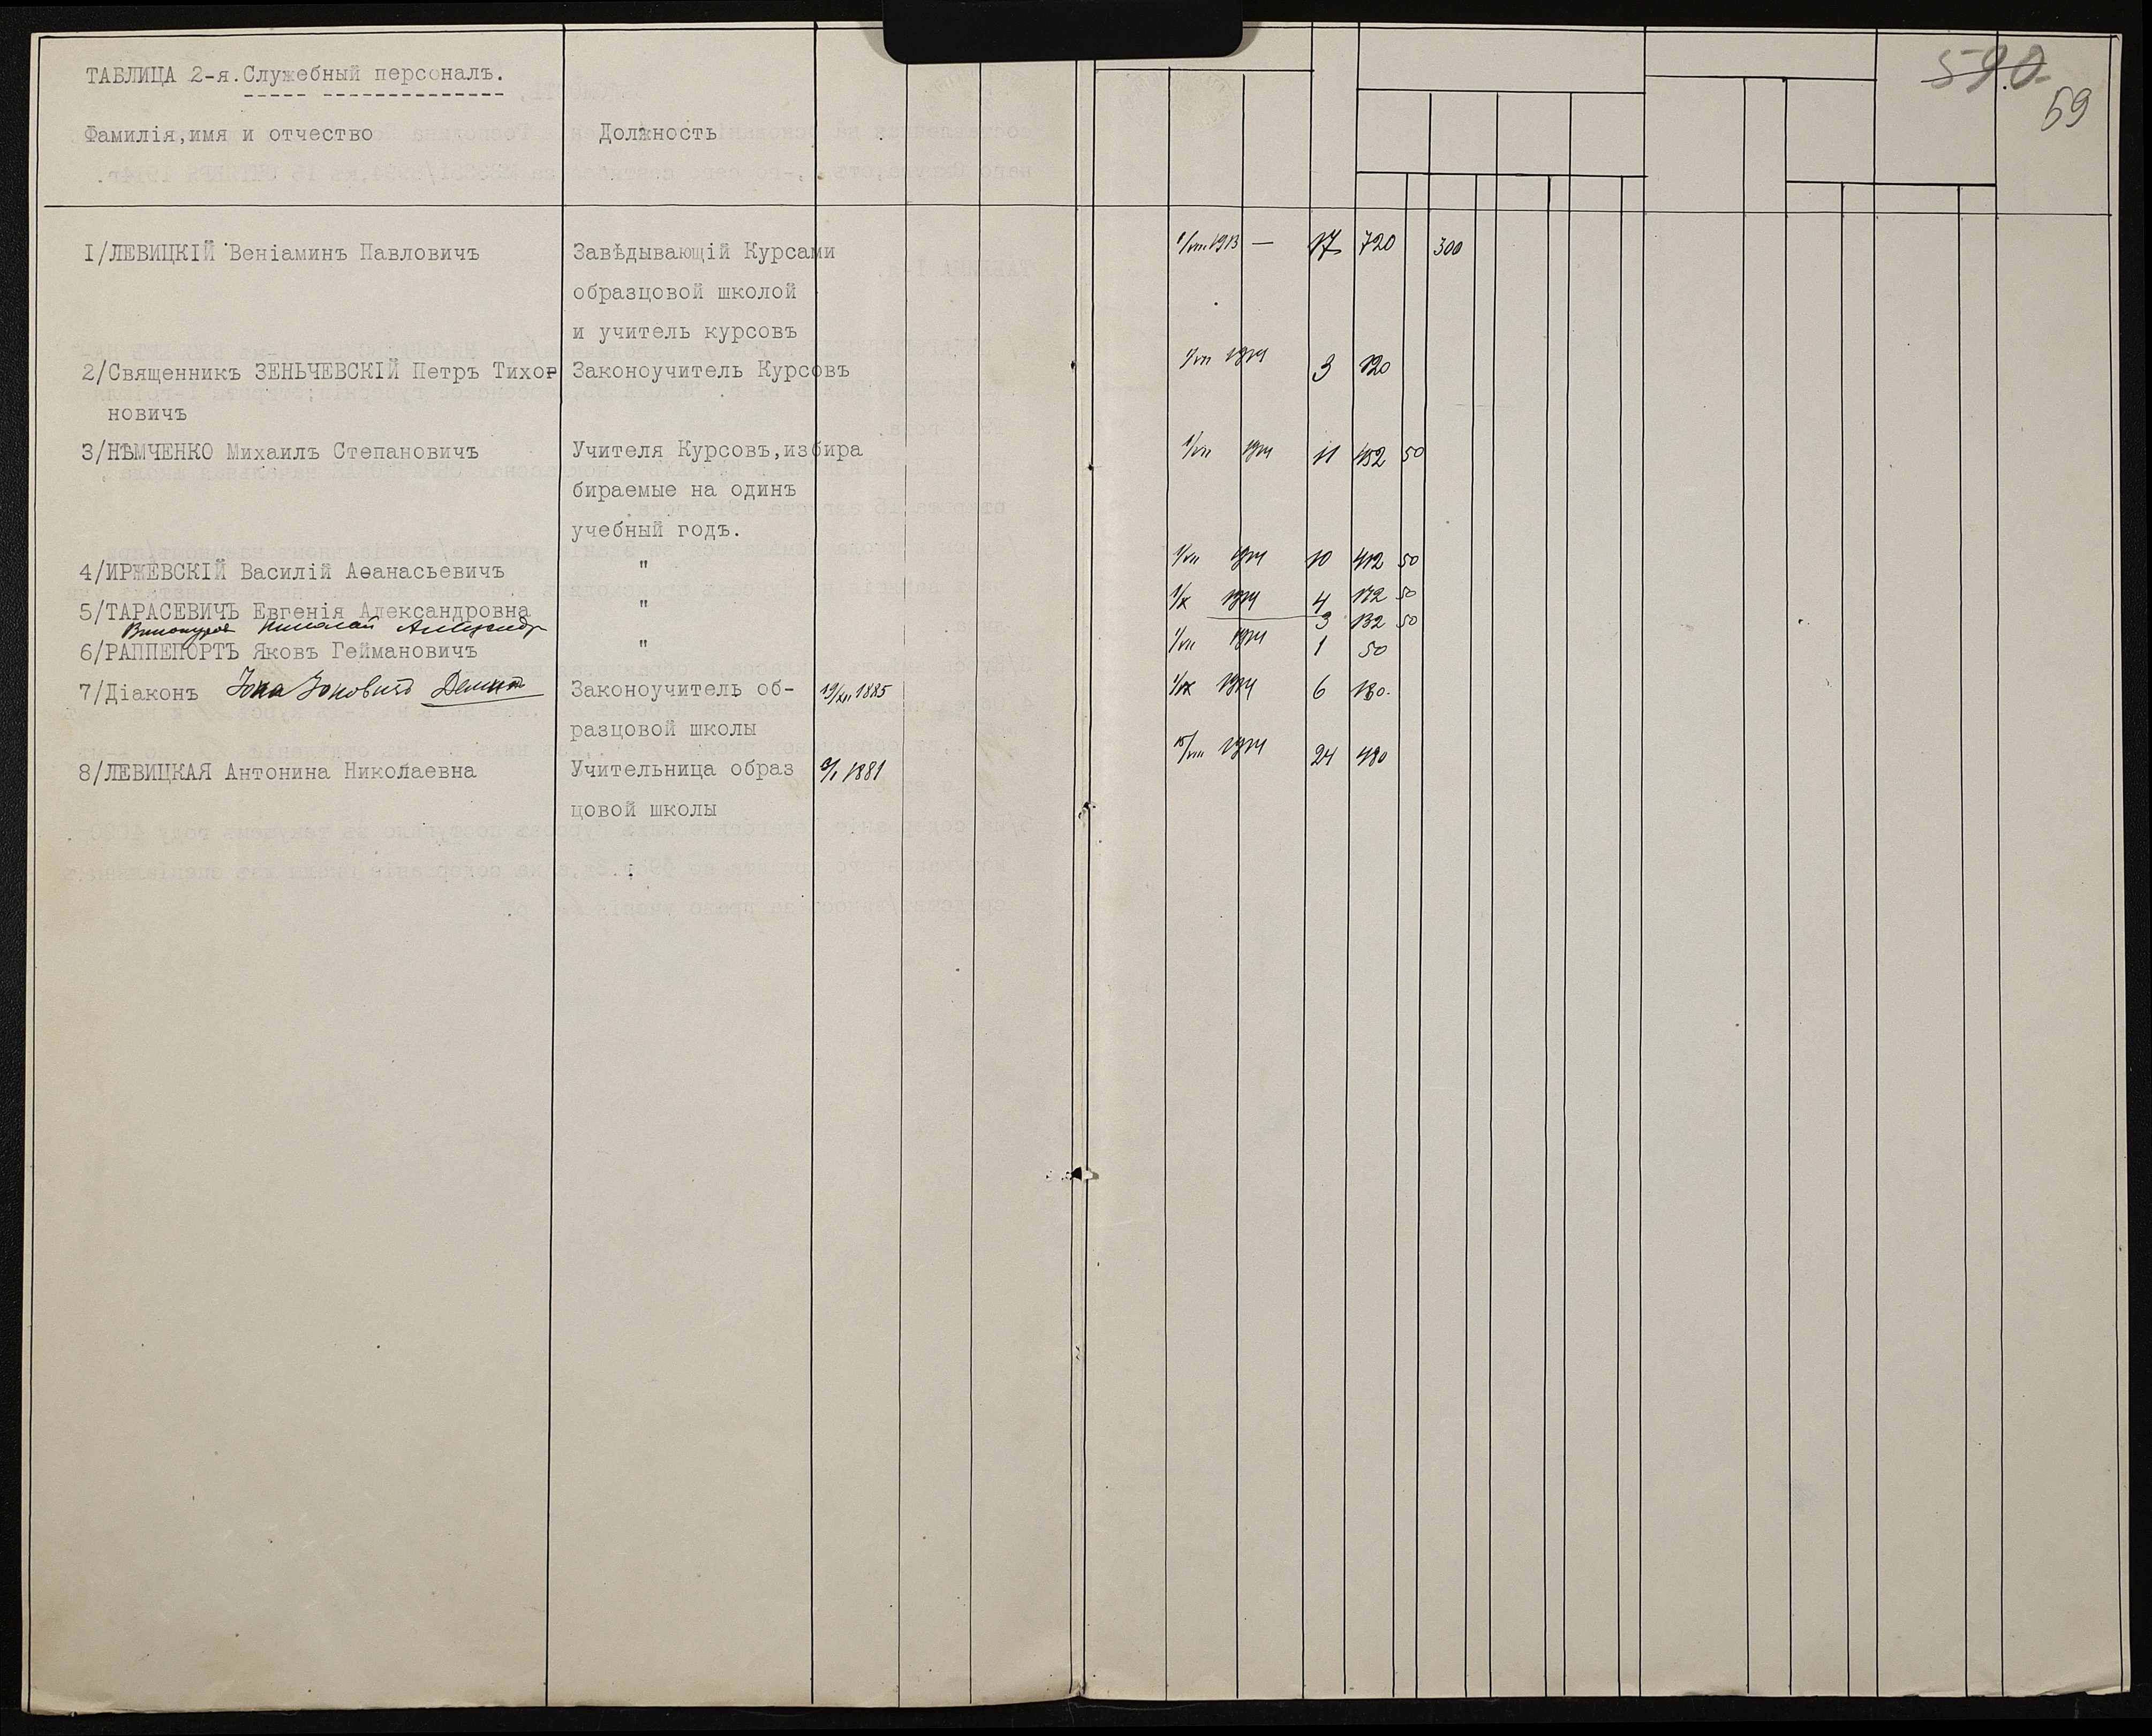 ТАБЛИЦА 2-я. Служебный персоналъ.
590
59
Фамилія, имя и отчество Должность
I/ЛЕВИЦКІЙ Веніаминъ Павловичъ Завѣдывающій Курсами 1/VIII 1913 — 17 720 300
образцовой школой
и учитель курсовъ
2/Священникъ ЗЕНЬЧЕВСКІЙ Петръ Тихо Законоучитель Курсовъ 1/VII 1914 3 120
новичъ
3/НѢМЧЕНКО Михаилъ Степановичъ Учителя Курсовъ, избира 1/VII 1914 11 452 50
бираемые на одинъ
учебный годъ.
4/ИРЖЕВСКІЙ Василій Аѳанасьевичъ " 1/VII 1914 10 412 50
5/ТАРАСЕВИЧЪ Евгенія Александровна " 1/X 1914 4 172 50
Винокуров Николай Александр 3 132 50
6/РАППЕПОРТЪ Яковъ Геймановичъ " 1/VII 1914 1 50
7/Діаконъ Іона Іоновичъ Законоучитель об- 19/XII 1885 1/IX 1914 6 180.
разцовой школы
8/ЛЕВИЦКАЯ Антонина Николаевна Учительница образ 1881 15/VIII 1914 24 480
цовой школы